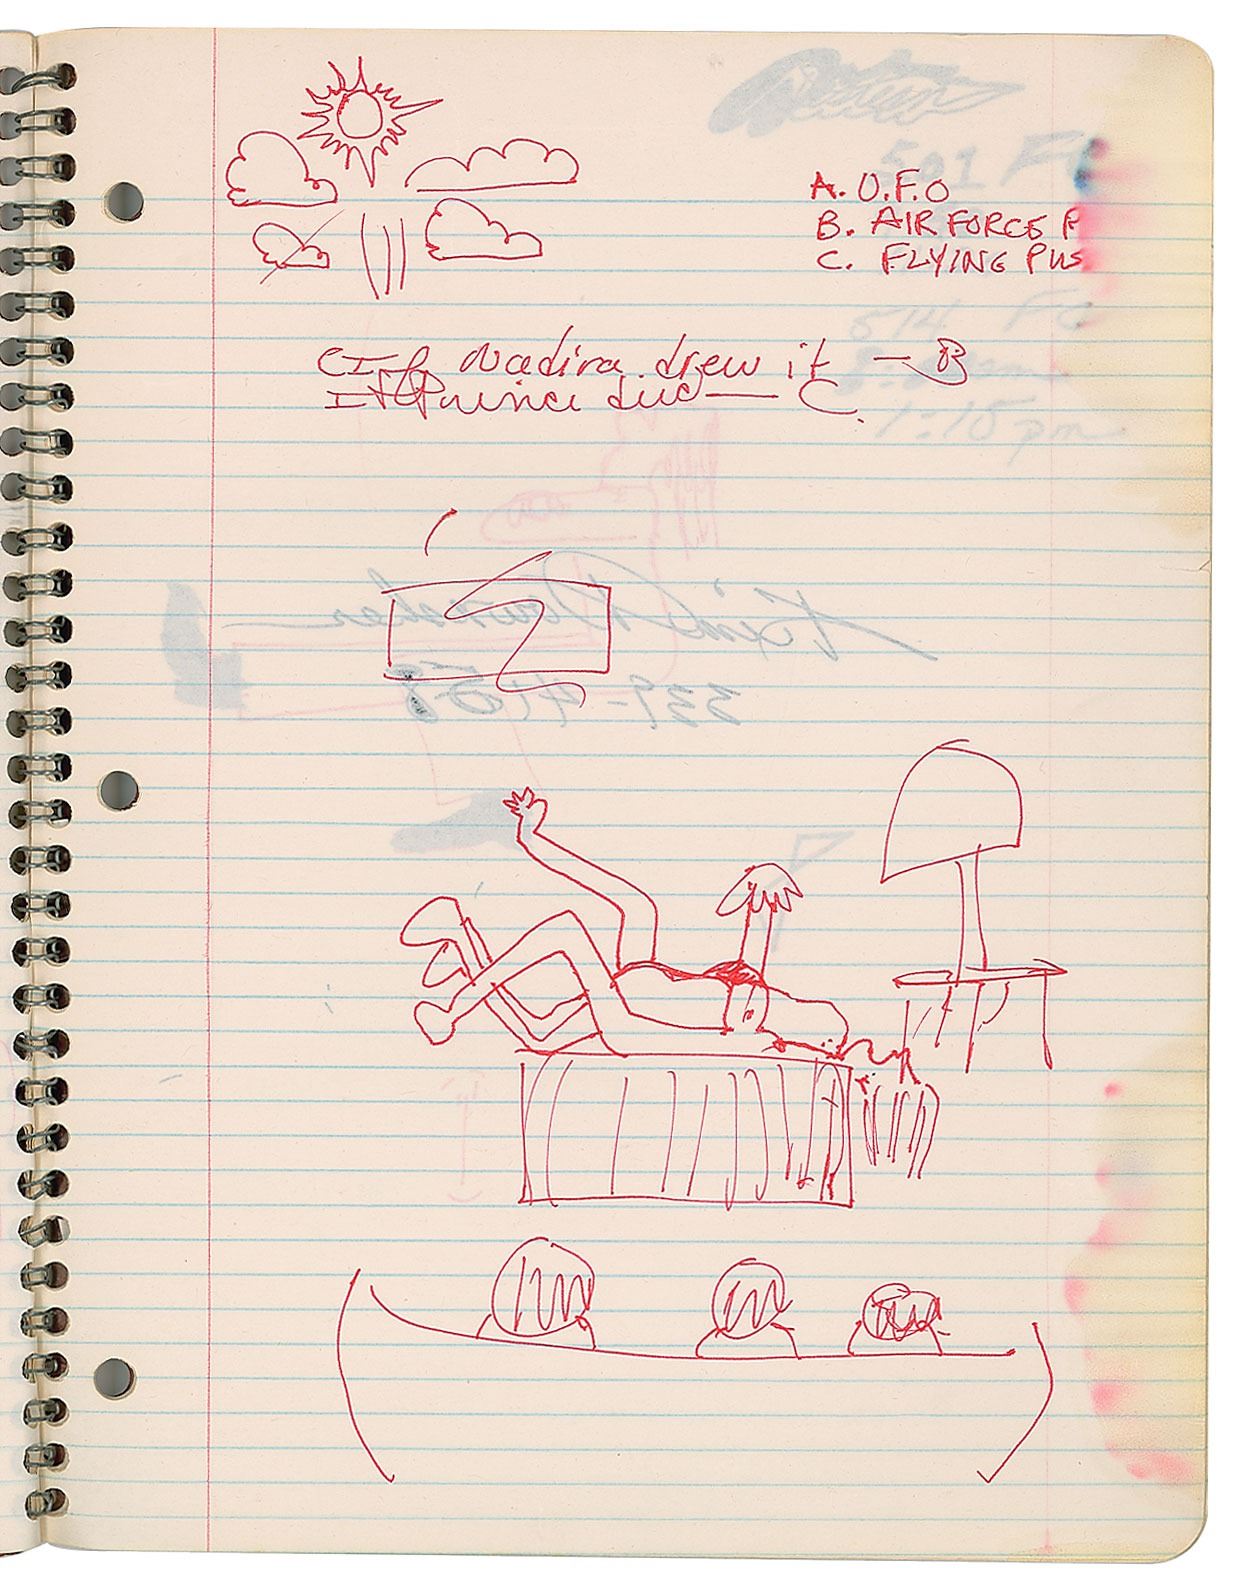 A. U.F.O
B. AIR FORCE P
C. FLYING PUS
If Nadira drew it — B
If Prince did — C.
501 F
514 Fe
1:15 pm
339-4158